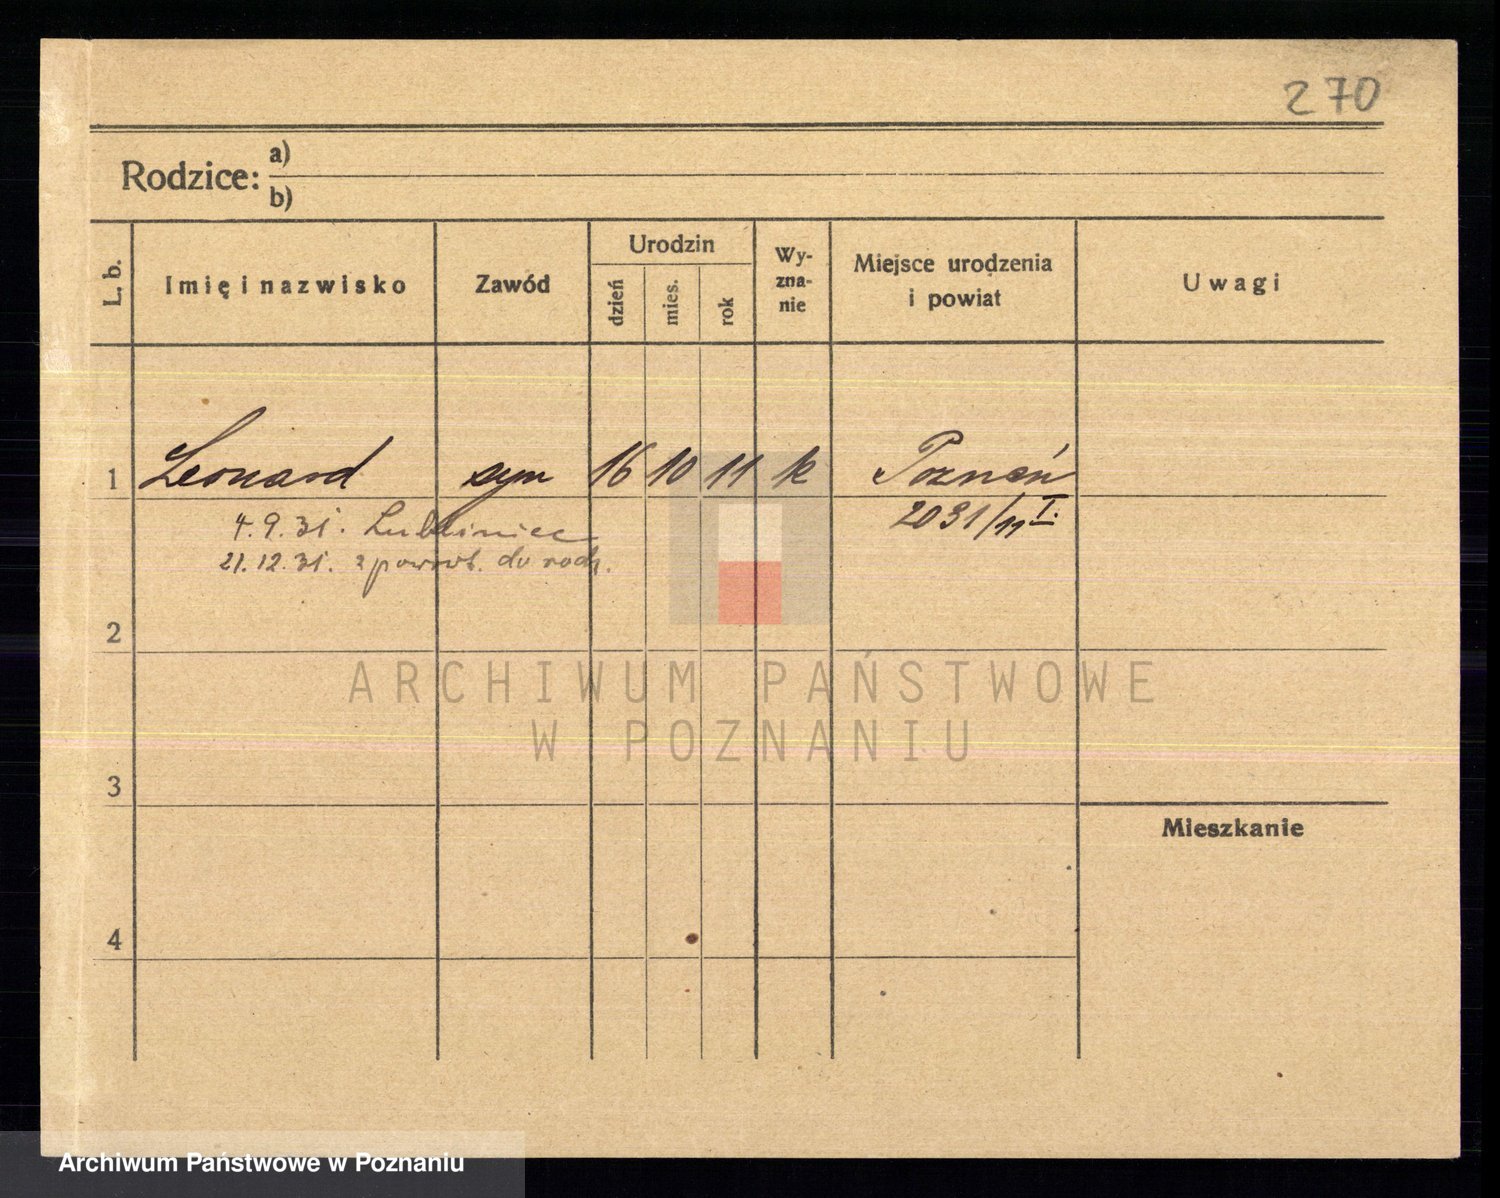 270
Rodzice: a)
b)
L. b.
Imię i nazwisko
Zawód
Urodzin
dzień
mies.
rok
Wy-
zna-
nie
Miejsce urodzenia
i powiat
Uwagi
1 Leonard syn 16 10 11 k Poznań
2031/11 I.
4.9.31. Lubliniec
21.12.31. z powrot. do rodz.
2
3
Mieszkanie
4
ARCHIWUM PAŃSTWOWE
W POZNANIU
Archiwum Państwowe w Poznaniu